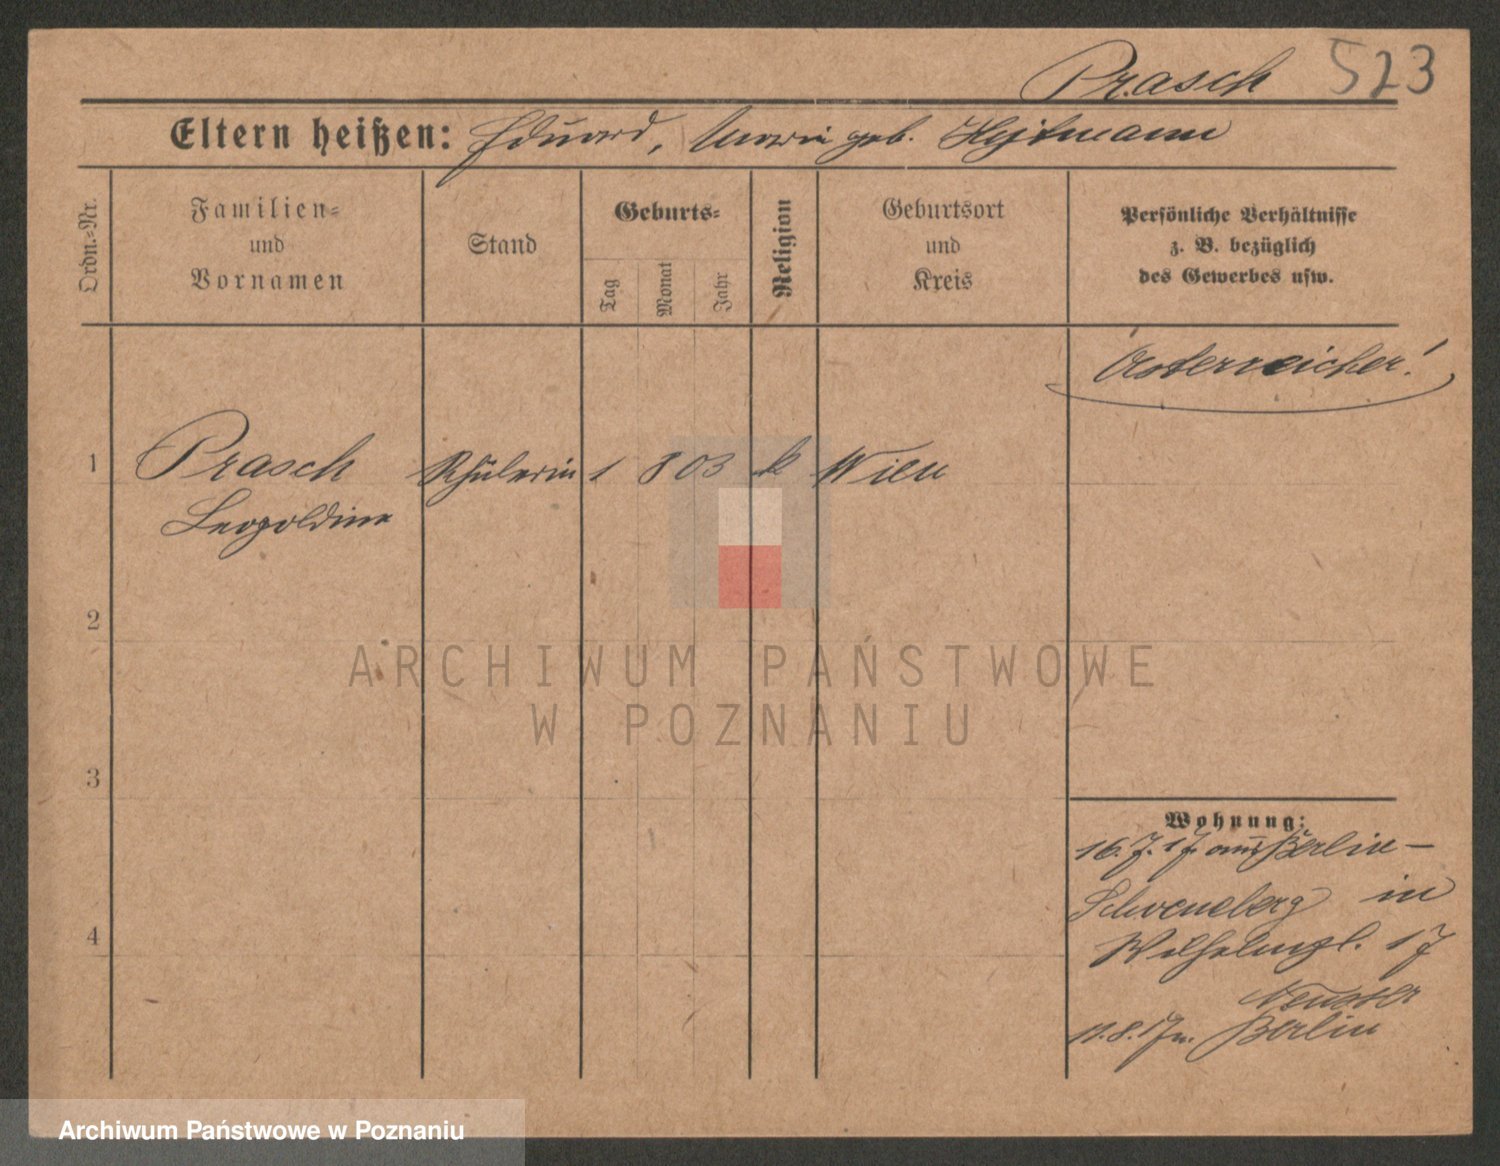 Prasch 523
Eltern heißen: Eduard, Marie geb. Hejtmann
Ordn.=Nr.
Familien=
und
Vornamen
Stand
Geburts=
Tag
Monat
Jahr
Religion
Geburtsort
und
Kreis
Persönliche Verhältnisse
z. B. bezüglich
des Gewerbes usw.
Oesterreicher!
1 Prasch Schülerin 1 8 03 k Wien
Leopoldine
2
ARCHIWUM PAŃSTWOWE
W POZNANIU
3
Wohnung:
16.7.17 aus Berlin-
Schoeneberg in
4
Wilhelmpl. 17
11.8.17 n. Berlin
Archiwum Państwowe w Poznaniu